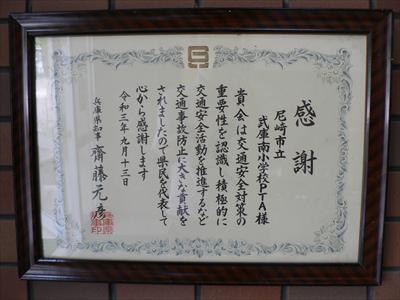 感謝
尼崎市立
武庫南小学校PTA様
貴会は交通安全対策の
重要性を認識し積極的に
交通安全活動を推進するなど
交通事故防止に大きな貢献を
されましたので県民を代表して
心から感謝します
令和三年九月十三日
兵庫県知事 齋藤元彦